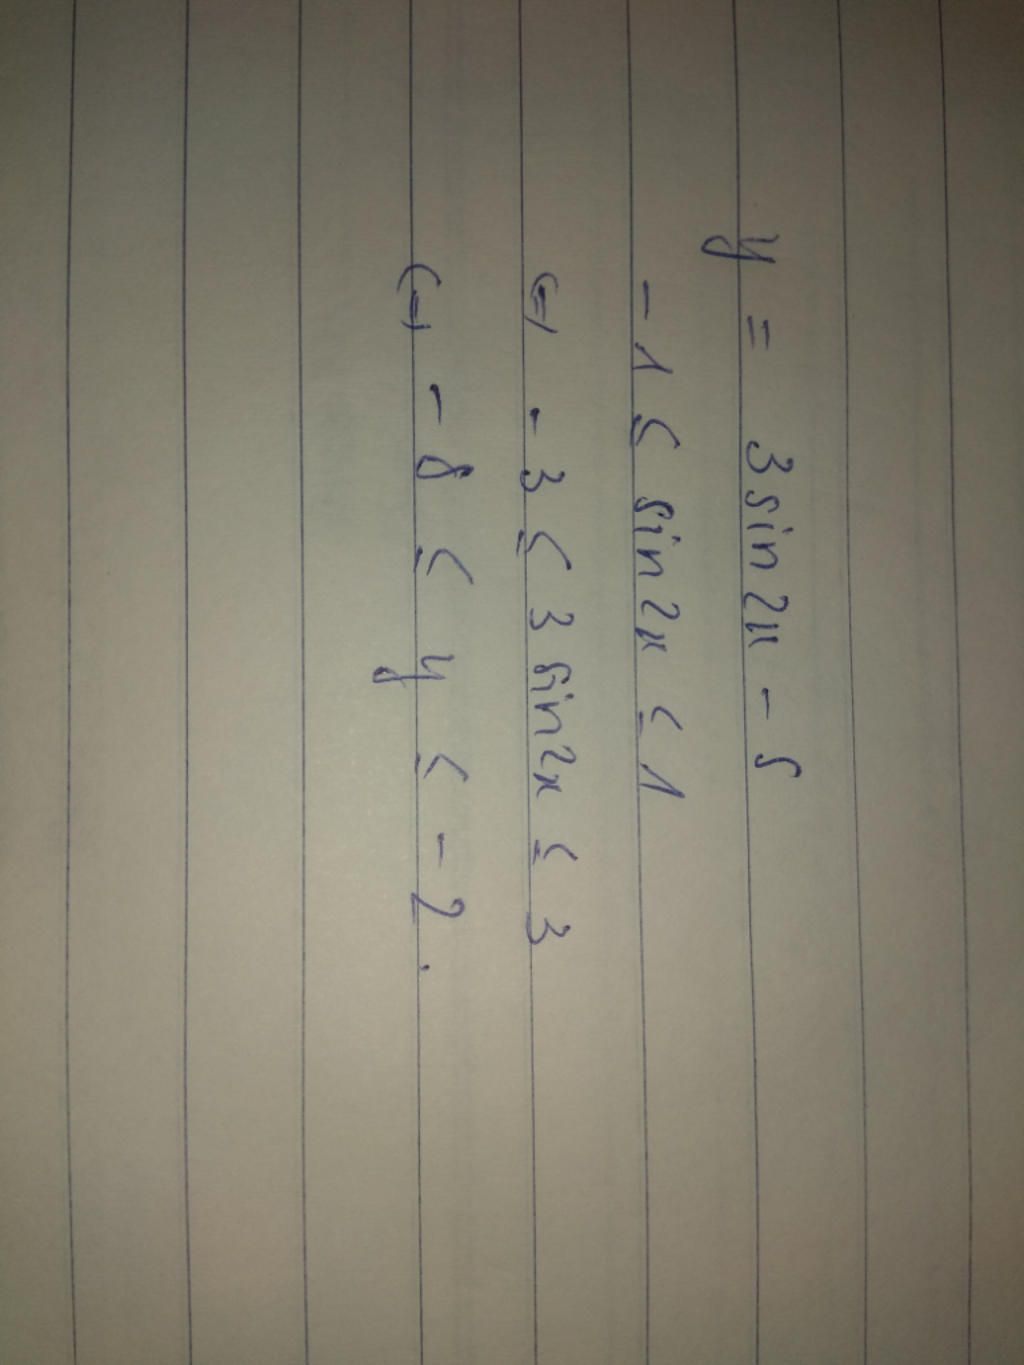 y = 3sin2x - 5
-1 ≤ sin2x ≤ 1
(=) -3 ≤ 3sin2x ≤ 3
(=) -8 ≤ y ≤ -2.